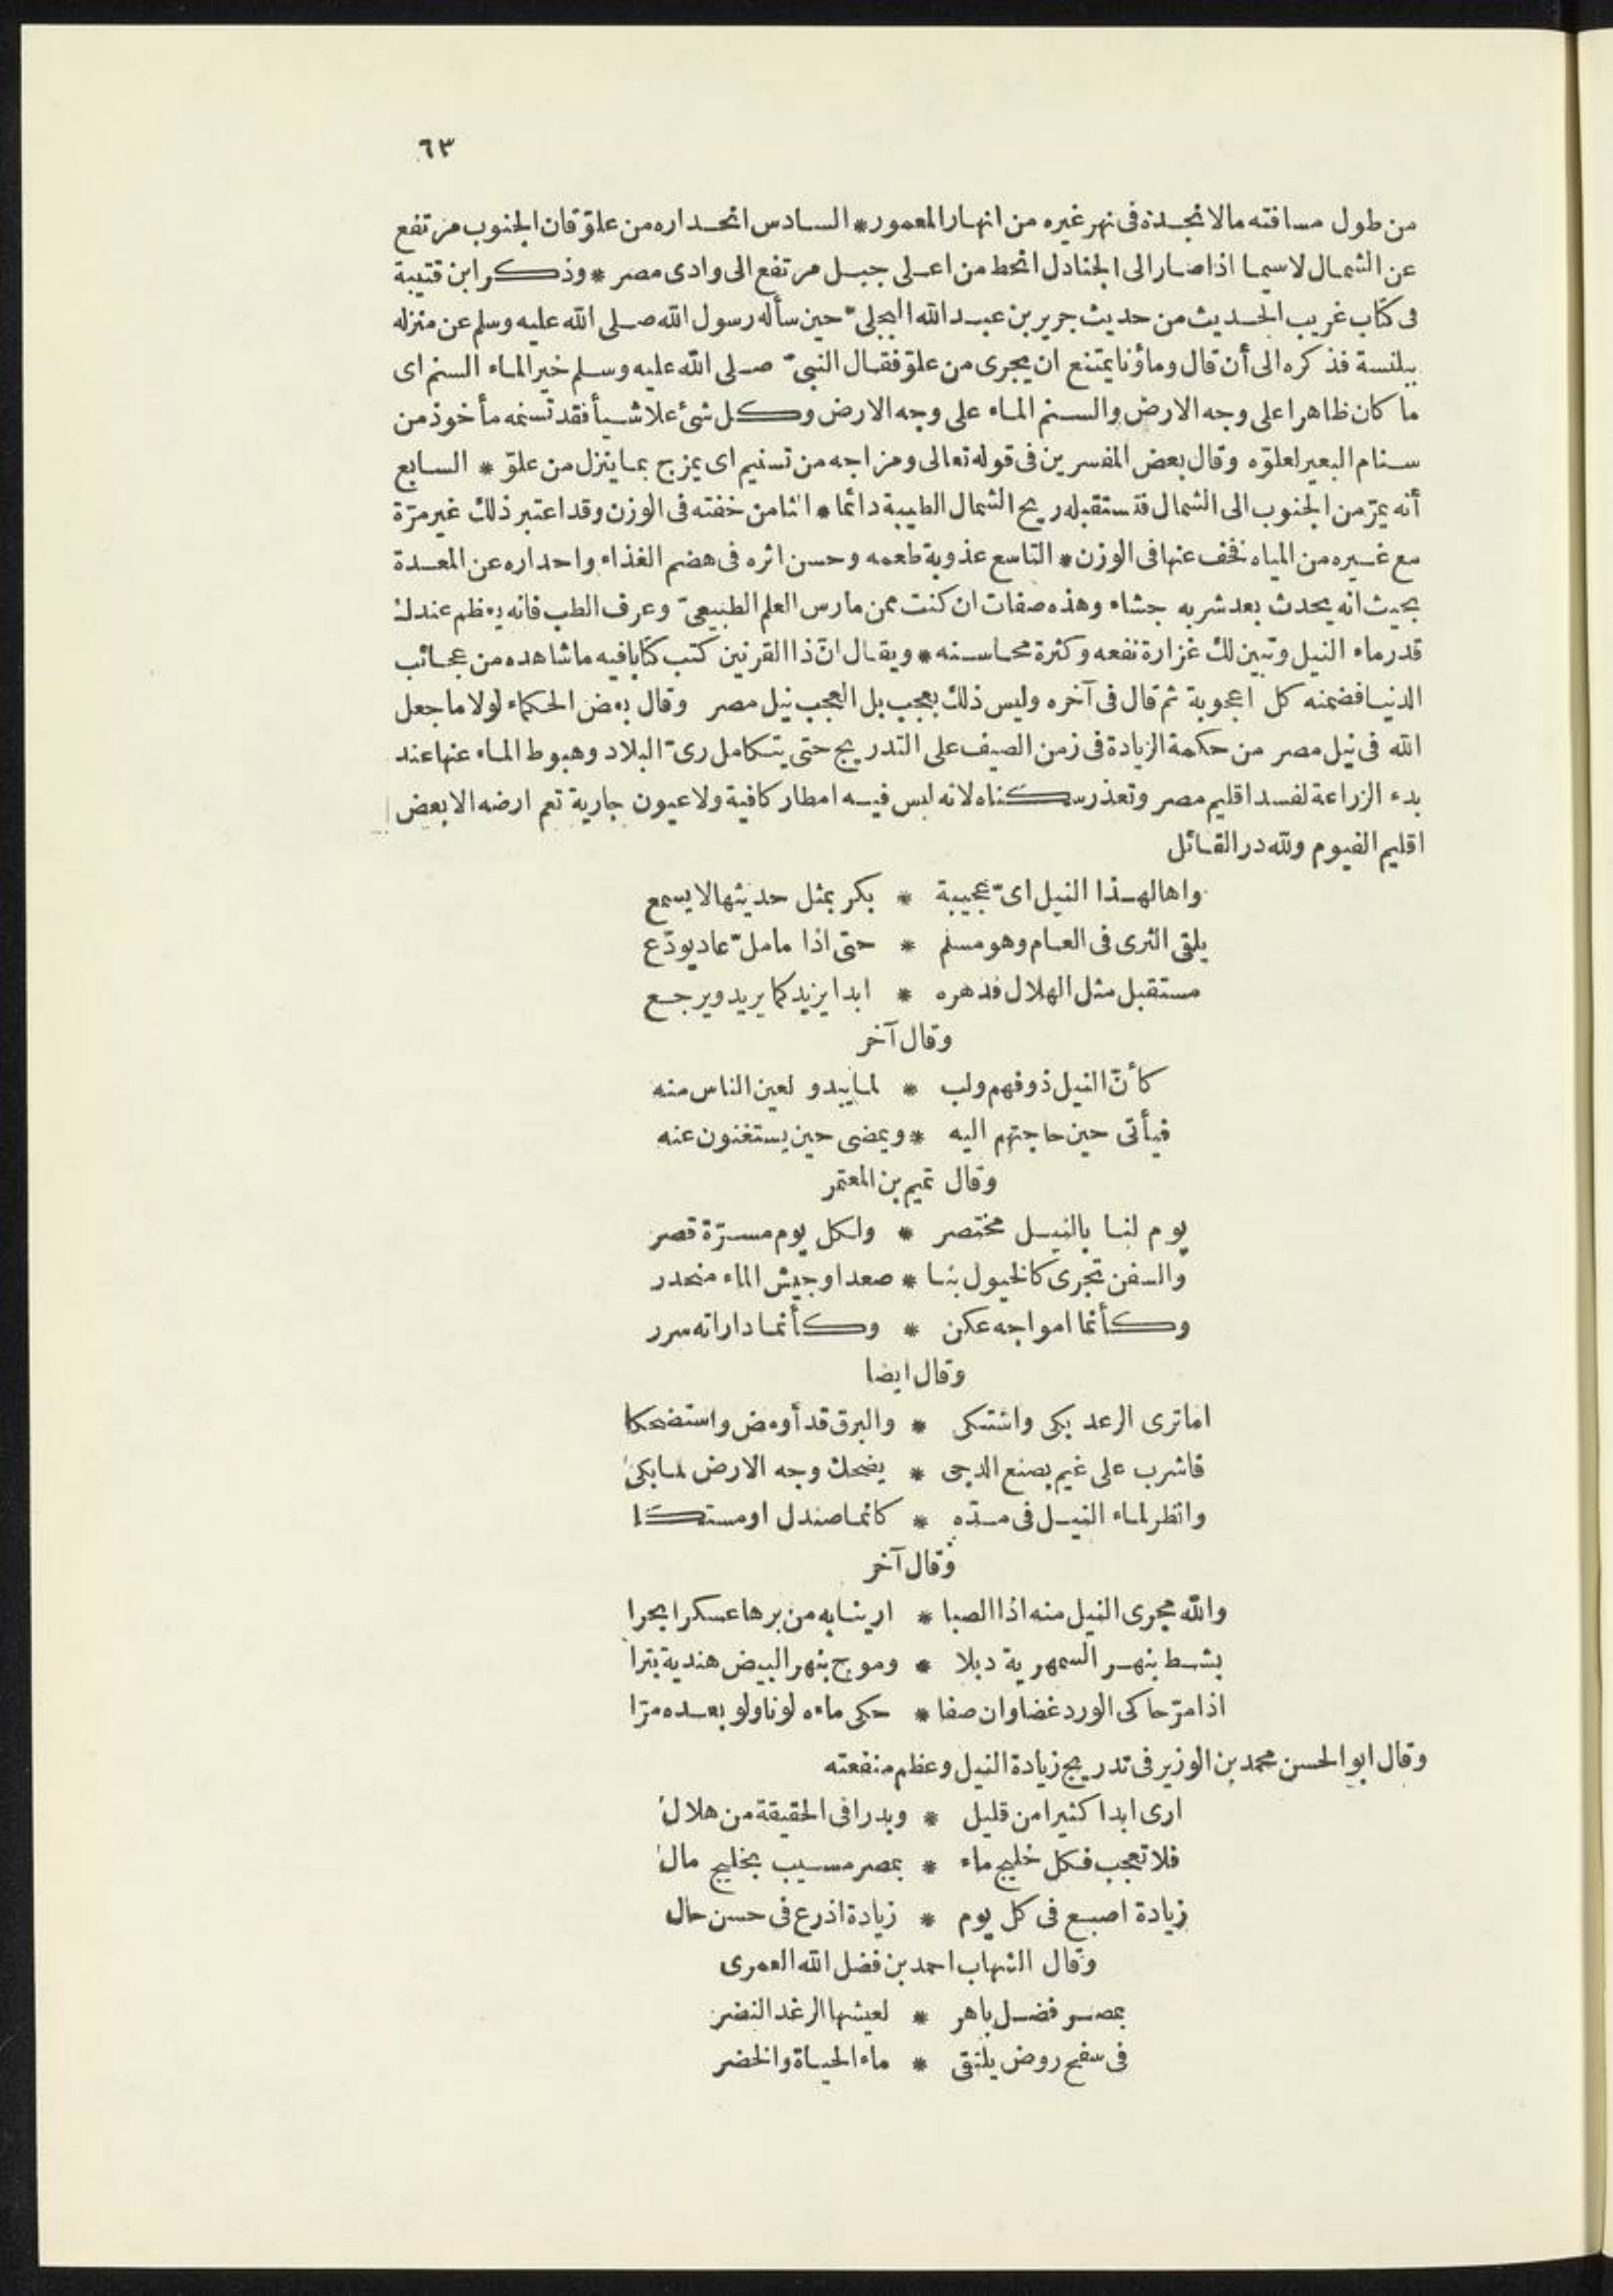 ٦٣
من طول مسافته مالا نجده فى نهر غيره من انهار المعمور * السادس انحداره من علوّ فان الجنوب مرتفع
عن الشمال لاسيما اذا صار الى الجنادل انحط من اعلى جبل مرتفع الى وادى مصر * وذكر ابن قتيبة
فى كتاب غريب الحديث من حديث جرير بن عبد الله البجلىّ حين سأله رسول الله صلى الله عليه وسلم عن منزله
ببلنسة فذكره الى أن قال وماؤنا يمتنع ان يجرى من علوّ فقال النبىّ صلى الله عليه وسلم خير الماء السنم اى
ما كان ظاهرا على وجه الارض والسنم الماء على وجه الارض وكل شئ علا شيأ فقد تسنمه مأخوذ من
سنام البعير لعلوّه وقال بعض المفسرين فى قوله تعالى ومزاجه من تسنيم اى يمزج بما ينزل من علوّ * السابع
أنه يمرّ من الجنوب الى الشمال فتستقبله ريح الشمال الطيبة دائما * الثامن خفته فى الوزن وقد اعتبر ذلك غير مرّة
مع غيره من المياه فخف عنها فى الوزن * التاسع عذوبة طعمه وحسن اثره فى هضم الغذاء واحداره عن المعدة
بحيث انه يحدث بعد شربه جشاء وهذه صفات ان كنت ممن مارس العلم الطبيعىّ وعرف الطب فانه يعظم عندك
قدر ماء النيل وتبين لك غزارة نفعه وكثرة محاسنه * ويقال انّ ذا القرنين كتب كتابا فيه ما شاهده من عجائب
الدنيا فضمنه كل اعجوبة ثم قال فى آخره وليس ذلك بعجب بل العجب نيل مصر وقال بعض الحكماء لولا ما جعل
الله فى نيل مصر من حكمة الزيادة فى زمن الصيف على التدريج حتى يتكامل رىّ البلاد وهبوط الماء عنها عند
بدء الزراعة لفسد اقليم مصر وتعذر سكناه لانه ليس فيه امطار كافية ولا عيون جارية تعم ارضه الا بعض
اقليم الفيوم ولله در القائل
واها لهذا النيل اىّ عجيبة * بكر بمثل حديثها لا يسمع
يلقى الثرى فى العام وهو مسلم * حتى اذا ما ملّ عاد يودّع
مستقبل مثل الهلال فدهره * ابدا يزيد كما يريد ويرجع
وقال آخر
كأنّ النيل ذو فهم ولب * لما يبدو لعين الناس منه
فيأتى حين حاجتهم اليه * ويمضى حين يستغنون عنه
وقال تميم بن المعتمر
يوم لنا بالنيل مختصر * ولكل يوم مسرّة قصر
والسفن تجرى كالخيول بنا * صعدا وجيش الماء منحدر
وكأنما امواجه عكن * وكأنما داراته سرر
وقال ايضا
اما ترى الرعد بكى واشتكى * والبرق قد أومض واستضحكا
فاشرب على غيم بصنع الدجى * يضحك وجه الارض لما بكى
وانظر لماء النيل فى مدّه * كانما صندل او مستكا
وقال آخر
والله مجرى النيل منه اذا الصبا * ارينا به من برها عسكرا بحرا
بشط بنهر السمهرية دبلا * وموج بنهر البيض هندية بترا
اذا مرّ حاكى الورد غضا وان صفا * حكى ماءه لونا ولو بعده مرّا
وقال ابو الحسن محمد بن الوزير فى تدريج زيادة النيل وعظم منفعته
ارى ابدا كثيرا من قليل * وبدرا فى الحقيقة من هلال
فلا تعجب فكل خليج ماء * بمصر مسبب بخليج مال
زيادة اصبع فى كل يوم * زيادة اذرع فى حسن حال
وقال الشهاب احمد بن فضل الله العمرى
بمصر فضل باهر * لعيشها الرغد النضر
فى سفح روض يلتقى * ماء الحياة والخضر